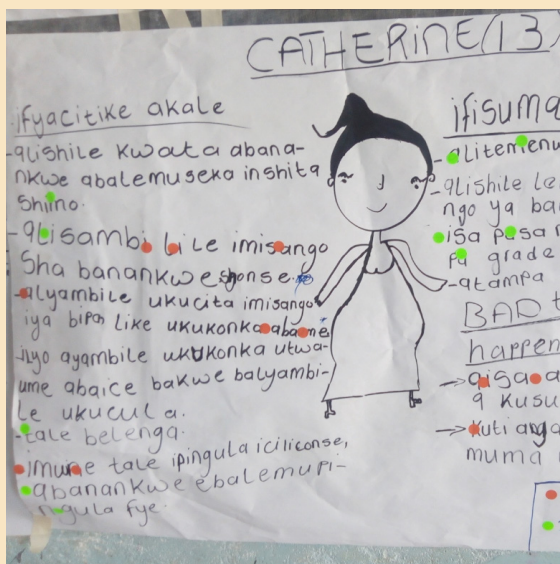 CATHERINE/13/
ifyacitike akale
-alishile kwata abana-
nkwe abalemuseka inshita
shiino.
-alisambililile imisango
Sha banankwe shonse.
-alyambile ukucita imisango
iya bipa. Like ukukonkaabaame
ngo ayambile ukukonka utwa-
ume abaice bakwe balyambi-
le ukucula.
-tale belenga.
-imune tale ipingula iciliconse,
-abanankwe ebalemupi-
ngula fye.
ifisuma
-alitemenw
-alishile le
ngo ya ba
isa pasa
pa grade
-atampa
BAD t
happen
→ aisa a
a kusu
→ kuti anga
muma i